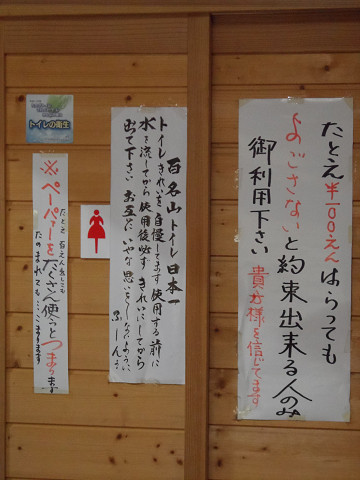 たとえ半100えんはらっても
よごさないと約束出来る人のみ
御利用下さい
貴方様を信じてます
百名山トイレ日本一
トイレきれいを自慢してます使用する前に
水を流してから使用後必ず きれいにしてから
出て下さい お互に いやな思いをしないように
トイレの衛生
※ペーパーをたくさん使うとつまります
たのまれても…こまります